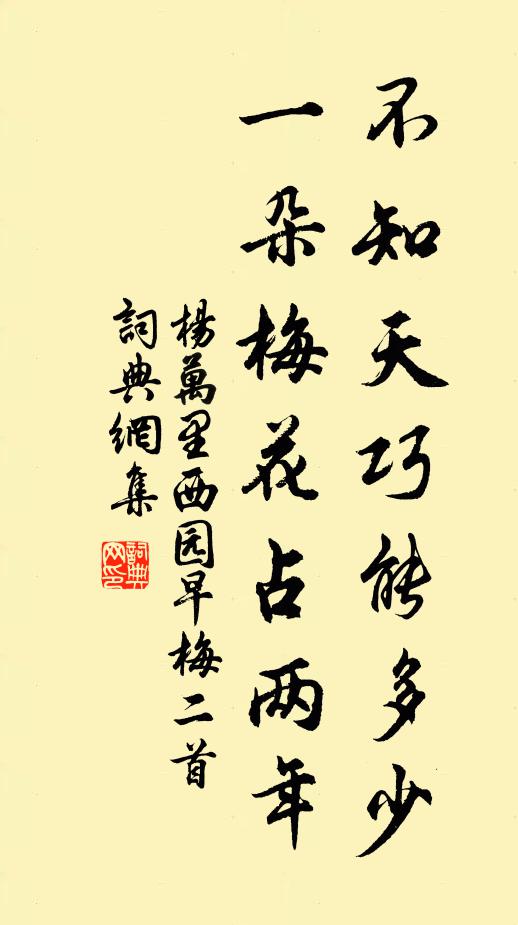 不知天巧能多少
一朵梅花占两年
楊萬里西园早梅二首
詞典網集
詞典网印